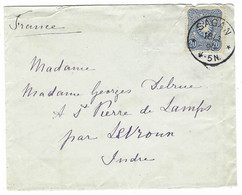 France
SAGAN
4-5N.
20
20
Madame
Madame Georges Debrue
A St Pierre de Lamps
par Levroux
Indre